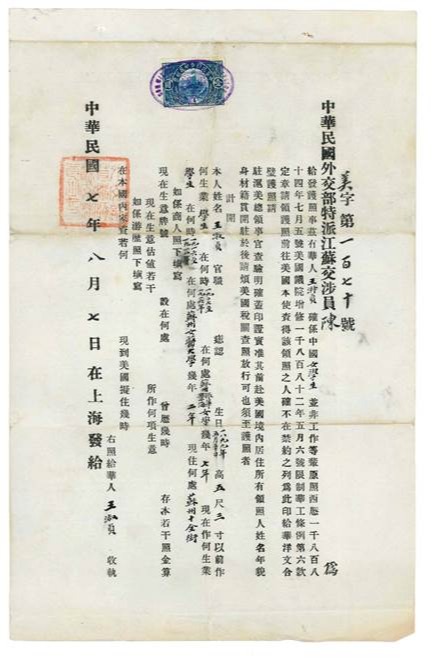 美字第一百七十號
中華民國外交部特派江蘇交涉員陳 為
給發護照事茲有華人王淑貞確係中國女學生並非工作等輩原照西歷一千八百八
十四年七月五號美國議院增修一千八百八十二年五月六號限制華工條例第六款
定章請領護照前往美國本使查得該領照之人確不在禁約之列為此印給華洋文合
璧護照請
駐滬美總領事官查驗明確蓋印證實准其前赴美國境內居住所有領照人姓名年貌
身材籍貫開註於後請煩美國稅關查照放行可也須至護照者
計開
本人姓名 王淑貞 官職 誌認 生日 高五尺三寸以前作
何生業 學生 在何時 在何處 女學 幾年 七年 現在作何生業
學生 在何時 在何處 蘇州女醫大學 幾年 二年 現住何處 蘇州十全街
如係商人照下填寫
現在生意牌號 設在何處 曾歷幾時 存本若干照金算
現在生意估值若干 所作何項生意
如係游歷照下填寫
在本國內家資若何 現到美國擬住幾時
右照給華人 王淑貞 收執
中華民國七年八月七日在上海發給